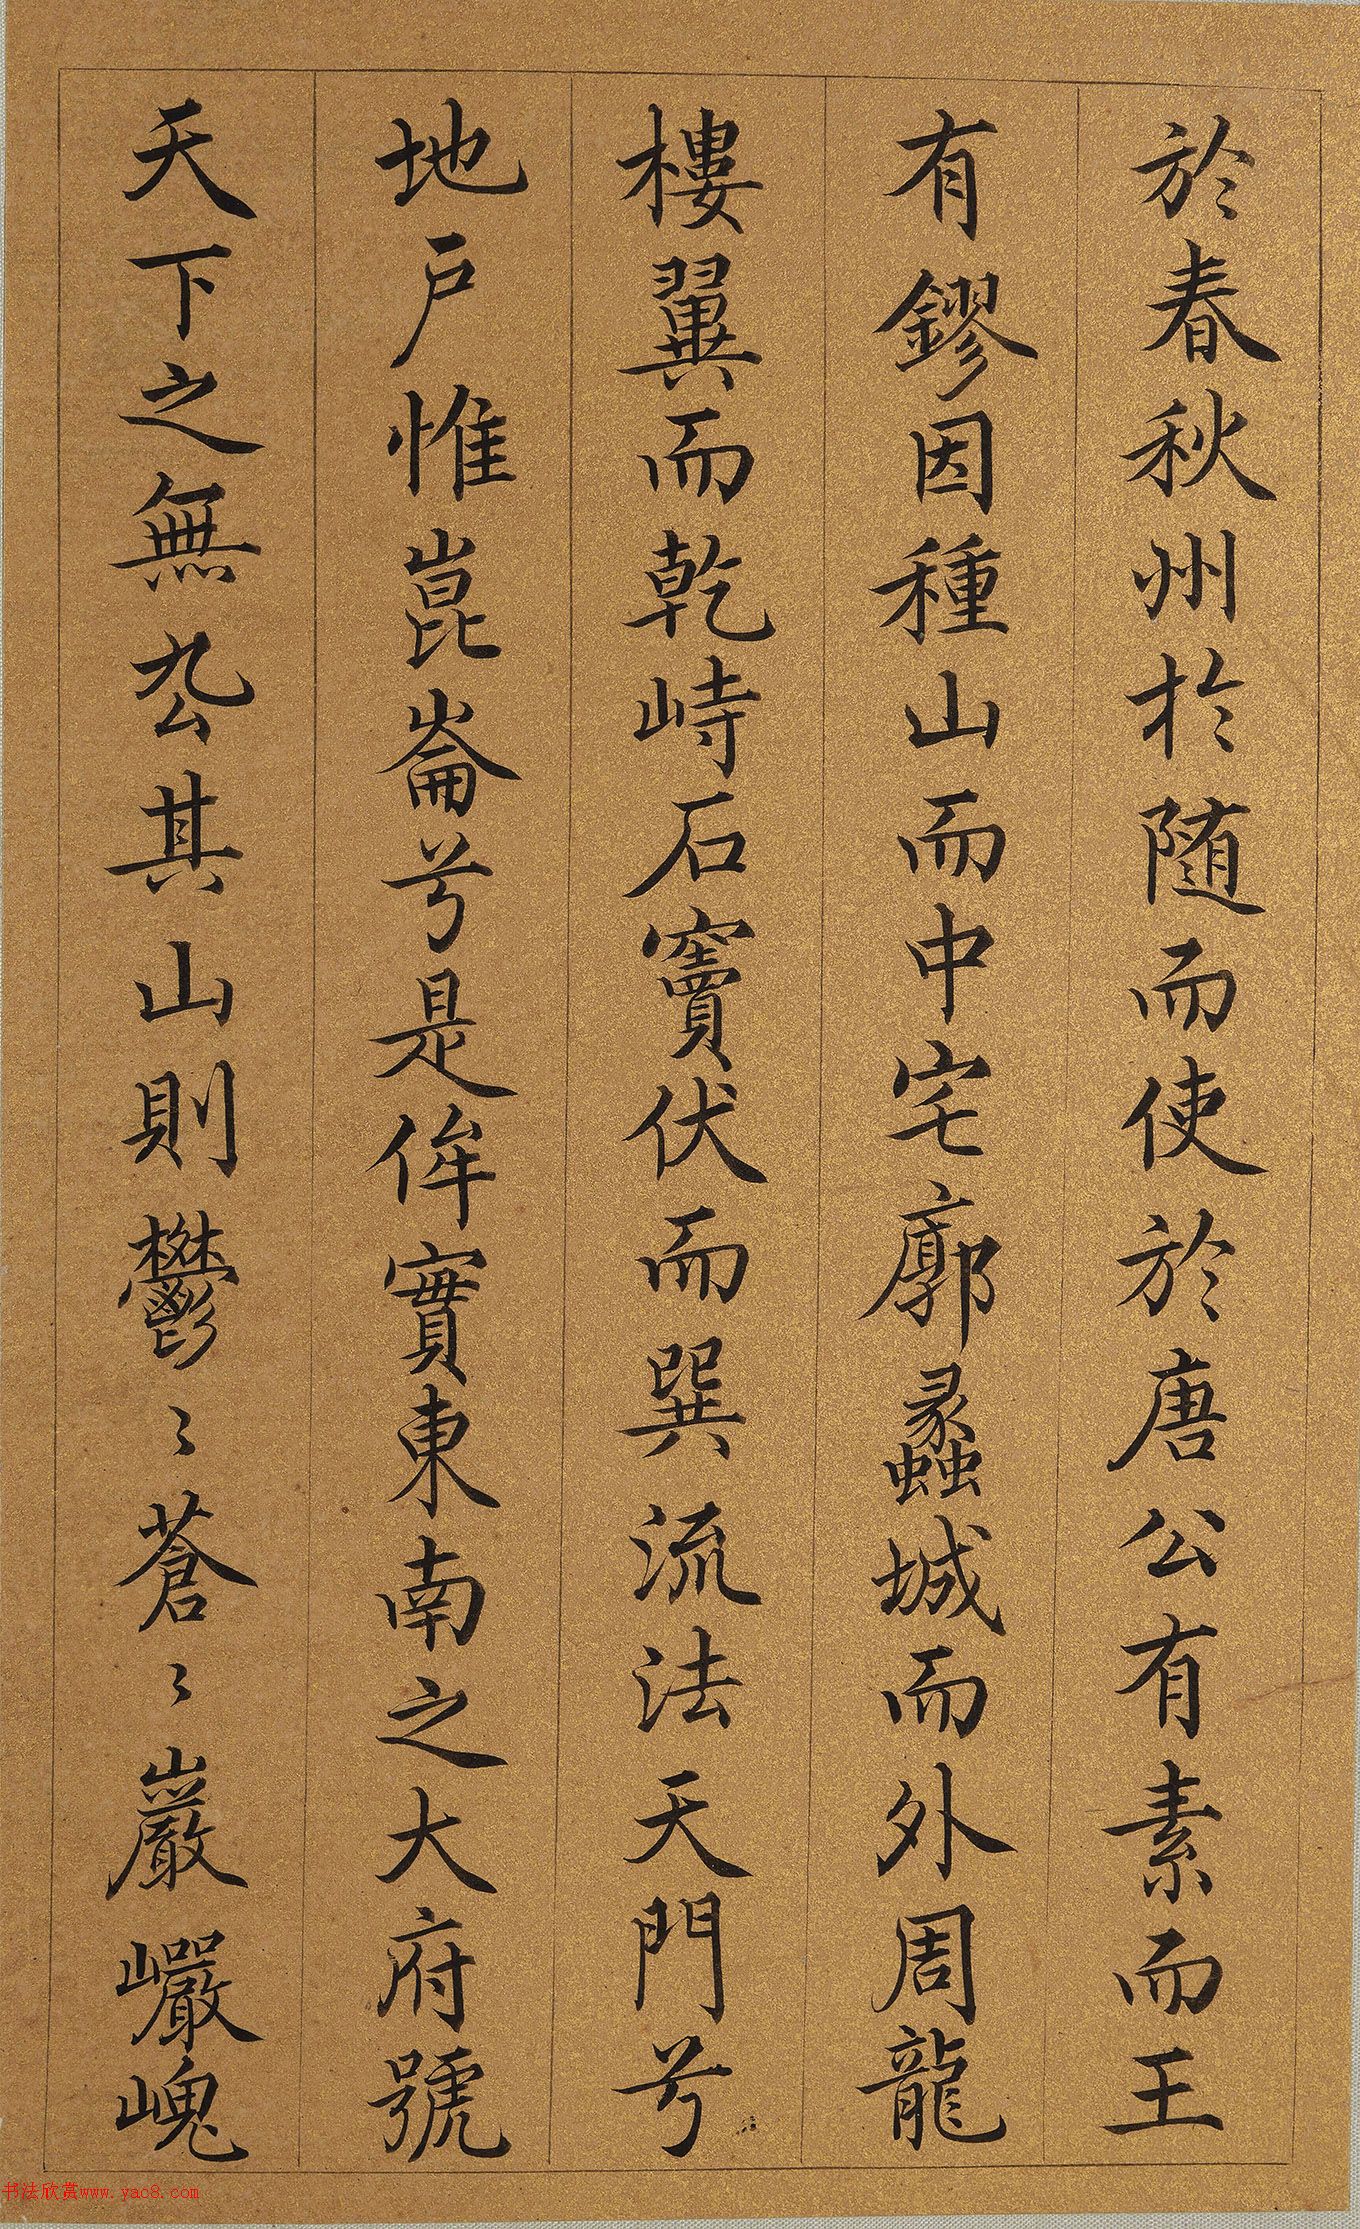 於春秋州於随而使於唐公有素而王
有鏐因種山而中宅廓蠡城而外周龍
樓翼而乾峙石竇伏而巽流法天門兮
地戶惟崑崙兮是侔實東南之大府號
天下之無㕤其山則鬱〻蒼〻巖巗嵬
书法欣赏www.yac8.com